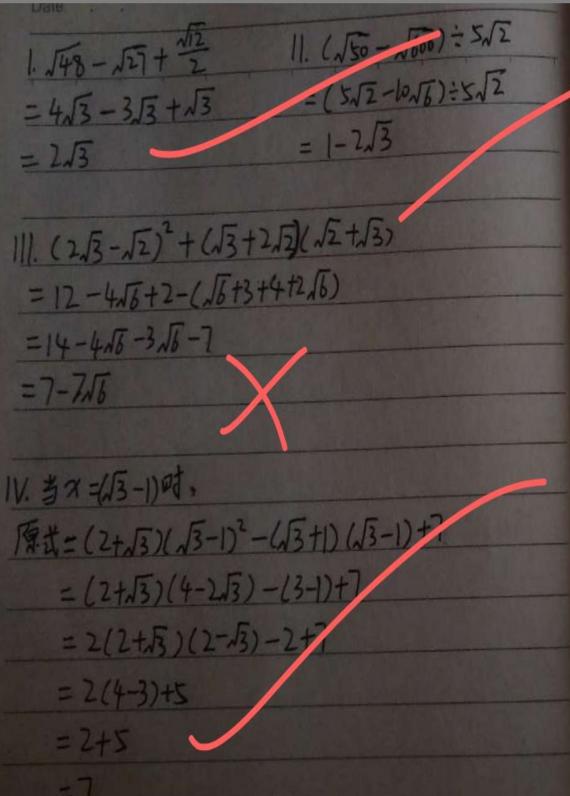 Date:
I. √48 - √27 + √12/2
= 4√3 - 3√3 + √3
= 2√3
II. (√50 - √600) ÷ 5√2
= (5√2 - 10√6) ÷ 5√2
= 1 - 2√3
III. (2√3 - √2)² + (√3 + 2√2)(√2 + √3)
= 12 - 4√6 + 2 - (√6 + 3 + 4 + 2√6)
= 14 - 4√6 - 3√6 - 7
= 7 - 7√6
IV. 当 x = (√3 - 1) 时,
原式 = (2 + √3)(√3 - 1)² - (√3 + 1)(√3 - 1) + 7
= (2 + √3)(4 - 2√3) - (3 - 1) + 7
= 2(2 + √3)(2 - √3) - 2 + 7
= 2(4 - 3) + 5
= 2 + 5
= 7